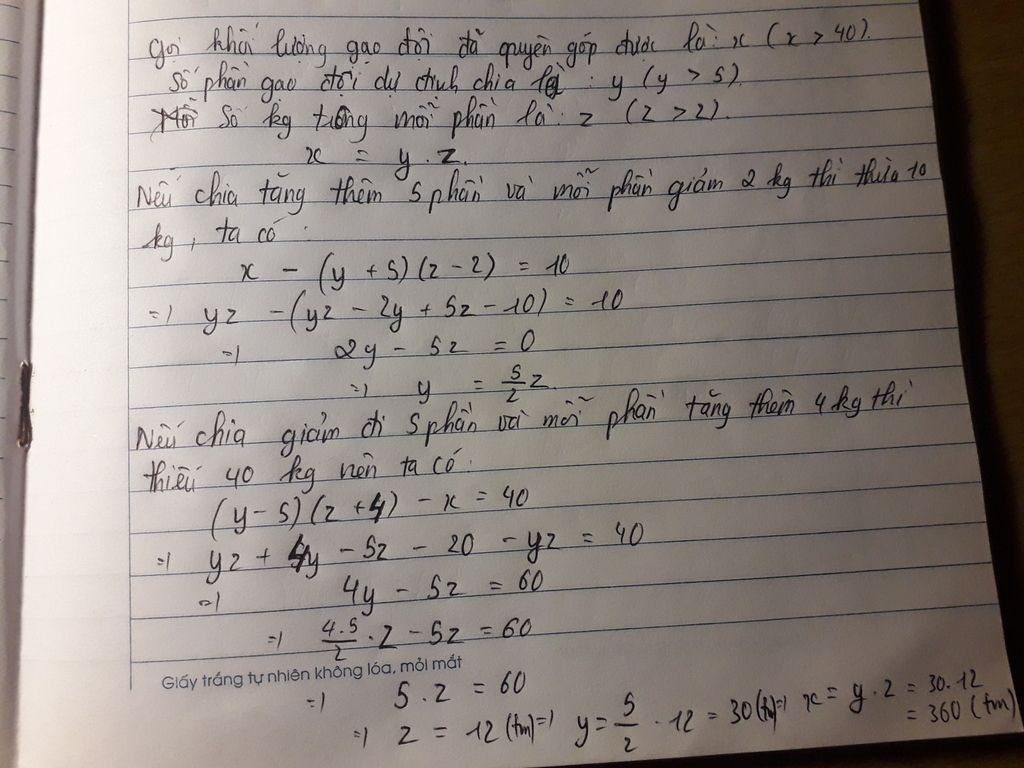 Gọi khối lượng gạo đội đã quyên góp được là: x (x > 40).
Số phần gạo đội dự định chia là : y (y > 5)
Số kg trong mỗi phần là: z (z > 2).
x = y . z.
Nếu chia tăng thêm 5 phần và mỗi phần giảm 2 kg thì thừa 10
kg, ta có :
x - (y + 5)(z - 2) = 10
=> yz - (yz - 2y + 5z - 10) = 10
=> 2y - 5z = 0
=> y = 5/2 z
Nếu chia giảm đi 5 phần và mỗi phần tăng thêm 4 kg thì
thiếu 40 kg nên ta có:
(y - 5)(z + 4) - x = 40
=> yz + 4y - 5z - 20 - yz = 40
=> 4y - 5z = 60
=> 4.5/2 . z - 5z = 60
Giấy trắng tự nhiên không lóa, mỏi mắt
=> 5 . z = 60
=> z = 12 (tm) => y = 5/2 . 12 = 30 (tm) => x = y . z = 30.12
= 360 (tm)